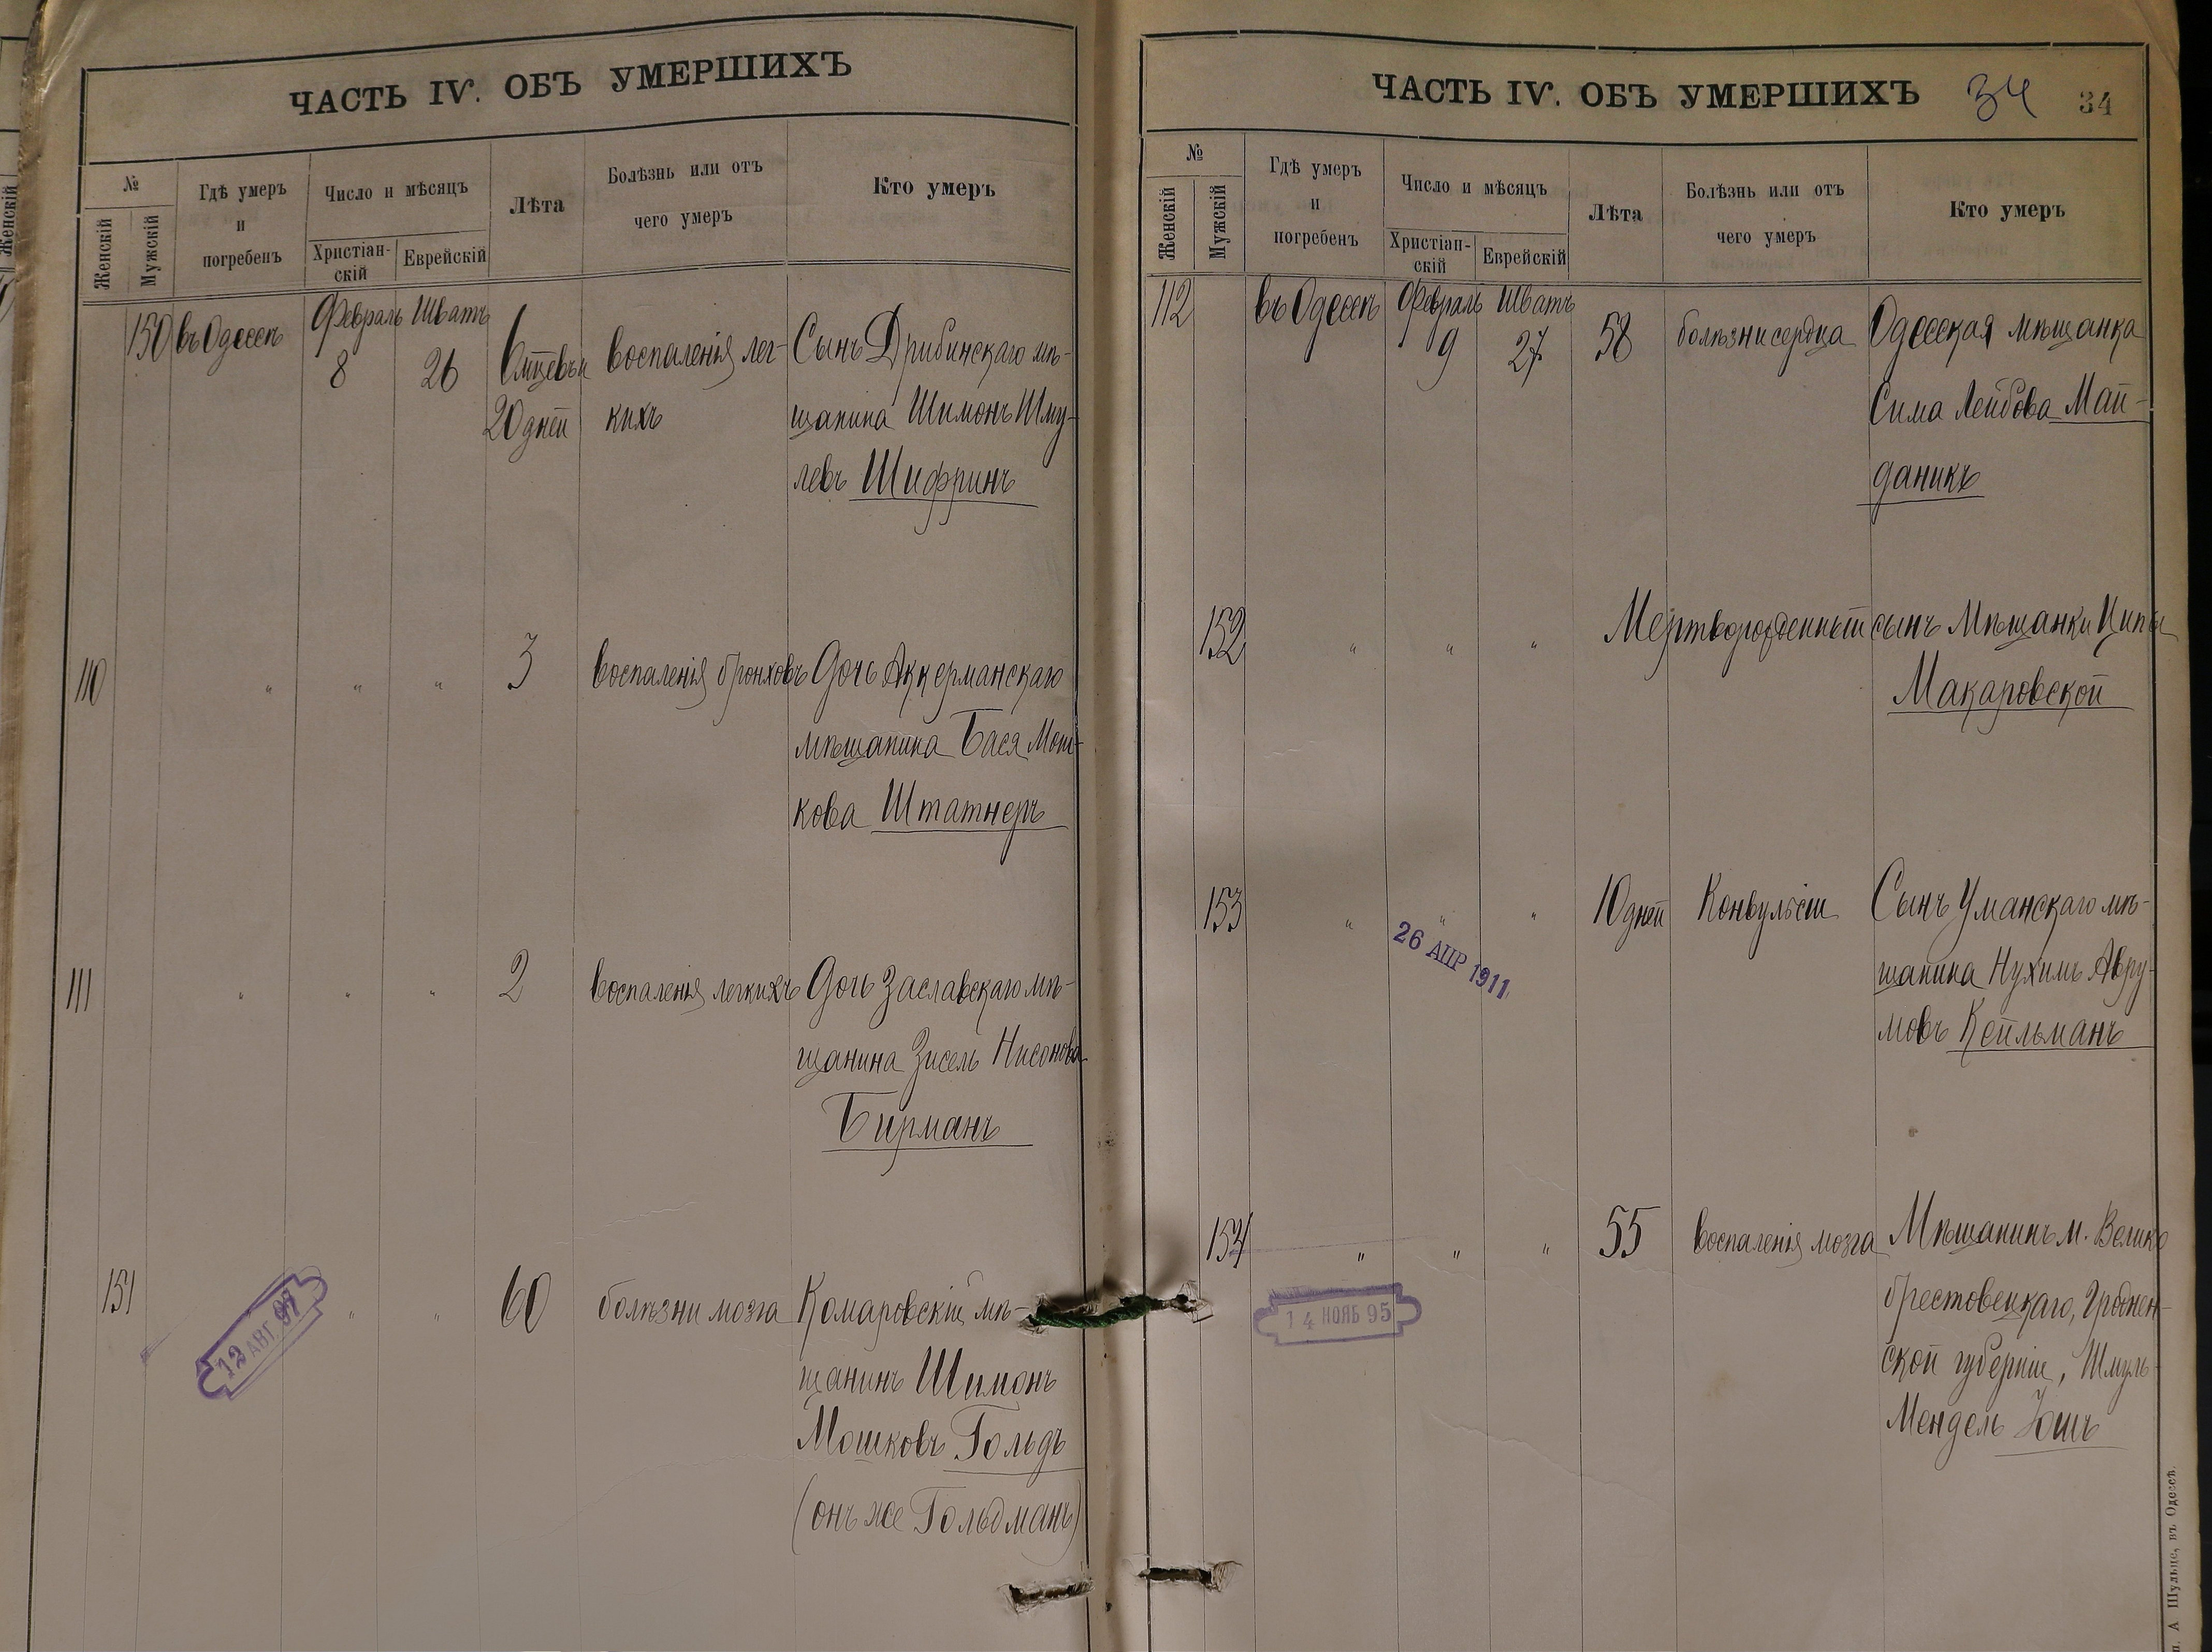 ЧАСТЬ IV. ОБЪ УМЕРШИХЪ
№
Женскій
Мужскій
Гдѣ умеръ
и
погребенъ
Число и мѣсяцъ
Христіан-
скій
Еврейскій
Лѣта
Болѣзнь или отъ
чего умеръ
Кто умеръ
150 въ Одессѣ Февраль Шватъ
8 26 6 мцевъ и воспаленія лег- Сынъ Дрибинскаго мѣ-
20 дней кихъ щанина Шимонъ Шму-
левъ Шифринъ
110 " " " 3 воспаленія бронховъ Дочь Аккерманскаго
мѣщанина Бася Мош-
кова Штатнеръ
111 " " " 2 воспаленія легкихъ Дочь Заславскаго мѣ-
щанина Зисель Нисонова
Бирманъ
151 " " 60 болѣзни мозга Комаровскій мѣ-
щанинъ Шимонъ
Мошковъ Гольдъ
(онъ же Гольдманъ)
12 АВГ 97
ЧАСТЬ IV. ОБЪ УМЕРШИХЪ 34 34
№
Женскій
Мужскій
Гдѣ умеръ
и
погребенъ
Число и мѣсяцъ
Христіан-
скій
Еврейскій
Лѣта
Болѣзнь или отъ
чего умеръ
Кто умеръ
112 въ Одессѣ Февраль Шватъ
9 27 58 болѣзни сердца Одесская мѣщанка
Сима Лейбова Май-
даникъ
152 " " " Мертворожденный сынъ Мѣщанки Ципы
Макаровской
153 " " " 10 дней Конвульсіи Сынъ Уманскаго мѣ-
щанина Нухимъ Авру-
мовъ Кейльманъ
26 АПР 1911
154 " " " 55 воспаленія мозга Мѣщанинъ м. Велико
брестовецкаго, Гроднен-
ской губерніи, Шмуль-
Мендель Юшъ
14 НОЯБ 95
п. А Шульце, въ Одессѣ.